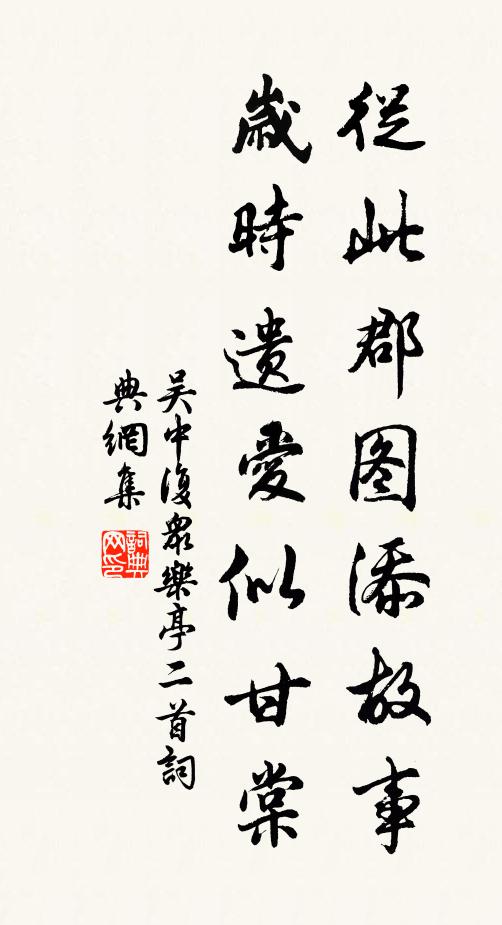 從此郡图添故事
歲時遺愛似甘棠
吴中復衆樂亭二首詞
典網集
詞典网印